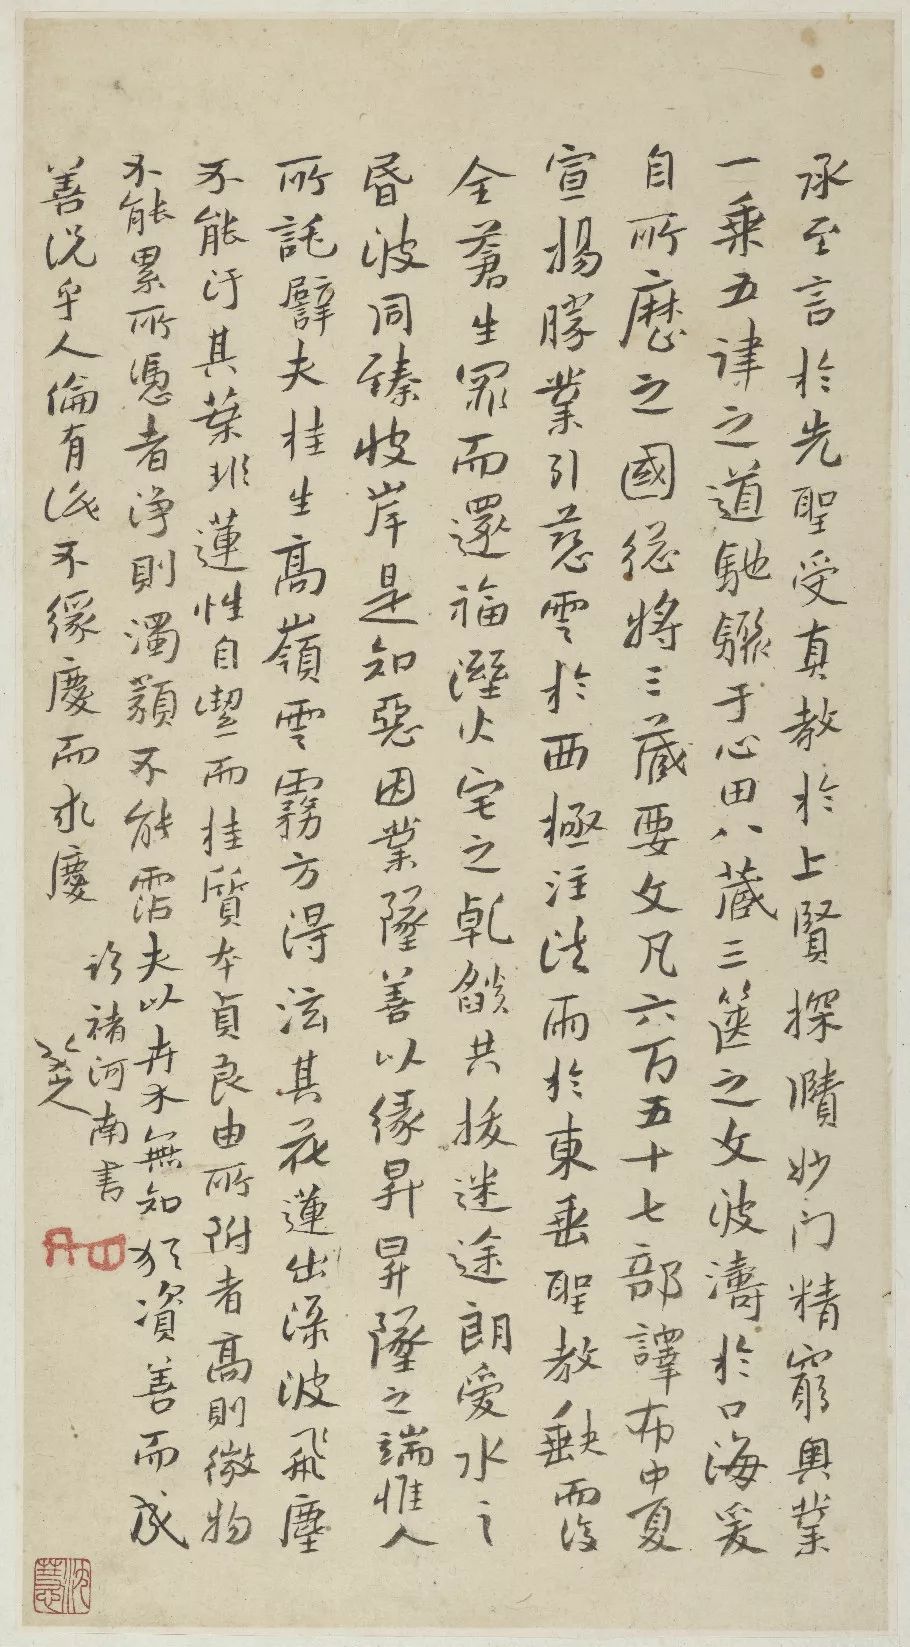 承至言於先聖受真教於上賢探賾妙门精窮奥業
一乘五律之道馳驟于心田八藏三篋之文波濤於口海爰
自所歷之國總將三藏要文凡六百五十七部譯布中夏
宣揚勝業引慈雲於西極注法雨於東垂聖教缺而復
全蒼生罪而還福溼火宅之乹燄共拔迷途朗愛水之
昏波同臻彼岸是知惡因業墜善以緣昇昇墜之端惟人
所託譬夫桂生高嶺雲露方得泫其花蓮出淥波飛塵
不能汙其葉非蓮性自潔而桂質本貞良由所附者高則微物
不能累所憑者淨則濁類不能霑夫以卉木無知猶資善而成
善況乎人倫有識不緣慶而求慶
臨褚河南書
八大山人
沈慧